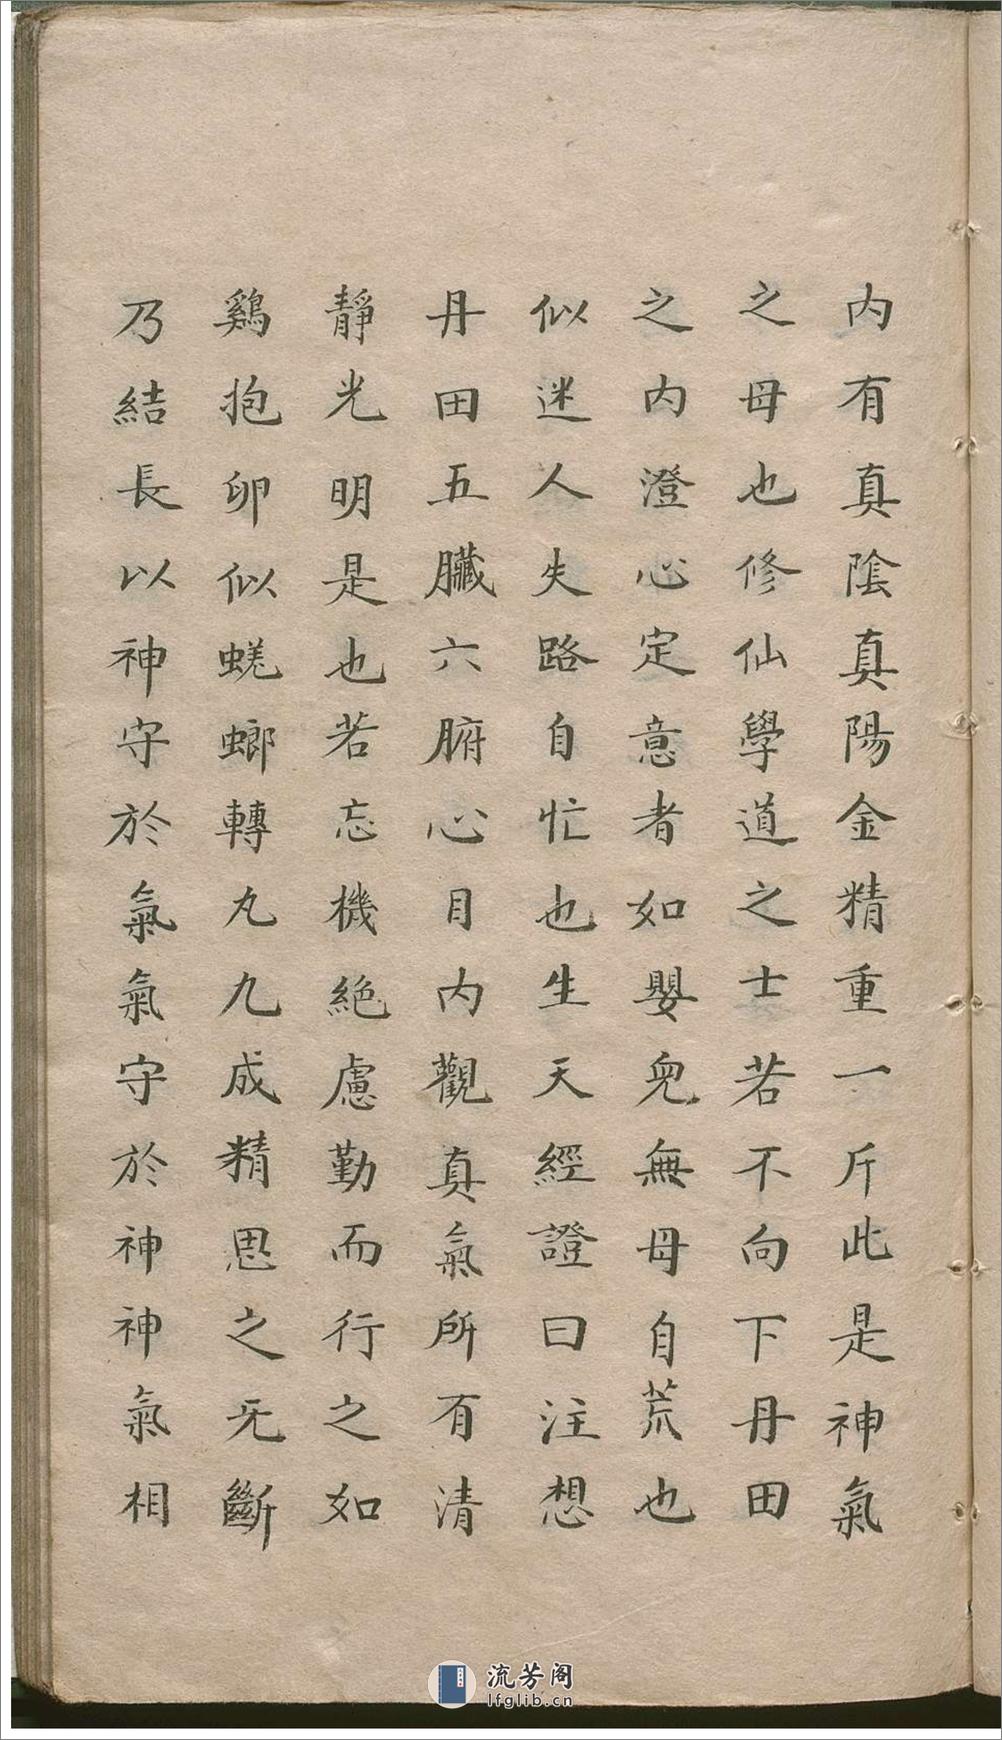 内有真陰真陽金精重一斤此是神氣
之母也修仙學道之士若不向下丹田
之内澄心定意者如嬰兒無母自荒也
似迷人失路自忙也生天經證曰注想
丹田五臟六腑心目内觀真氣所有清
靜光明是也若忘機絶慮勤而行之如
鷄抱卵似蜣螂轉丸九成精思之无斷
乃結長以神守於氣氣守於神神氣相
流芳阁
lfglib.cn